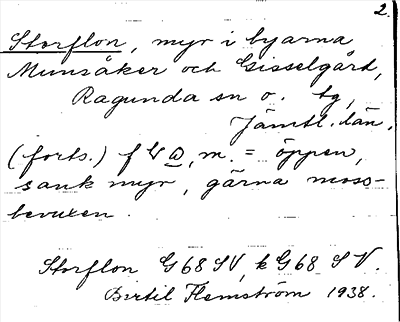 2.
Storflon, myr i byarna
Munsåker och Gisselgård,
Ragunda sn o. tg,
Jämtl. län.
(forts.) m. = öppen,
sank myr, gärna moss-
bevuxen.
Storflon G 68 SV, k G 68 SV.
Bertil Flemström 1938.